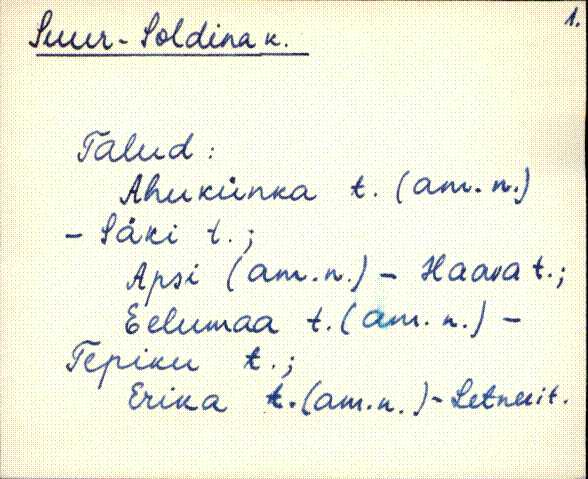 1.
Suur-Soldina k.
Talud:
Ahukünka t. (am.n.)
- Säki t.;
Apsi (am.n.) - Haava t.;
Eelumaa t. (am.n.) -
Tepiku t.;
Erika t. (am.n.) -